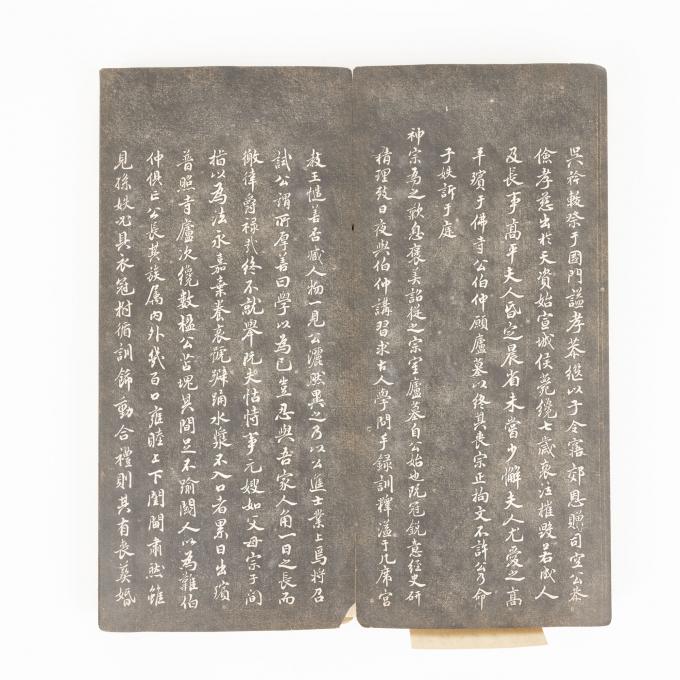 吳衿轂祭于國門謚孝恭繼以子令寤郊恩贈司空公恭
儉孝慈出於天資始宣城侯薨纔七歲哀泣摧毀若成人
及長事高平夫人昏定晨省未嘗少懈夫人尤愛之高
平殯于佛寺公伯仲願廬墓以終其喪宗正拘文不許公乃命
子姪訴于庭
神宗為之歎息襃美詔從之宗室廬墓自公始也既冠銳意經史研
精理致日夜與伯仲講習求古人學問手錄訓釋溢于几席宮
教王愷善否臧人物一見公灑然異之乃以公進士業上焉將召
試公謂所厚善曰學以為己豈忍與吾家人角一日之長而
徼倖爵祿哉終不就舉既失怙恃事元嫂如父母宗子間
指以為法永嘉棄養哀慌擗踊水漿不入口者累日出殯
普照寺廬次纔數楹公苫塊其間足不踰閾人以為難伯
仲俱亡公長其族屬內外紙百口雍睦上下閨閫肅然雖
見孫姪必具衣冠拊循訓飾動合禮則其有喪葬婚